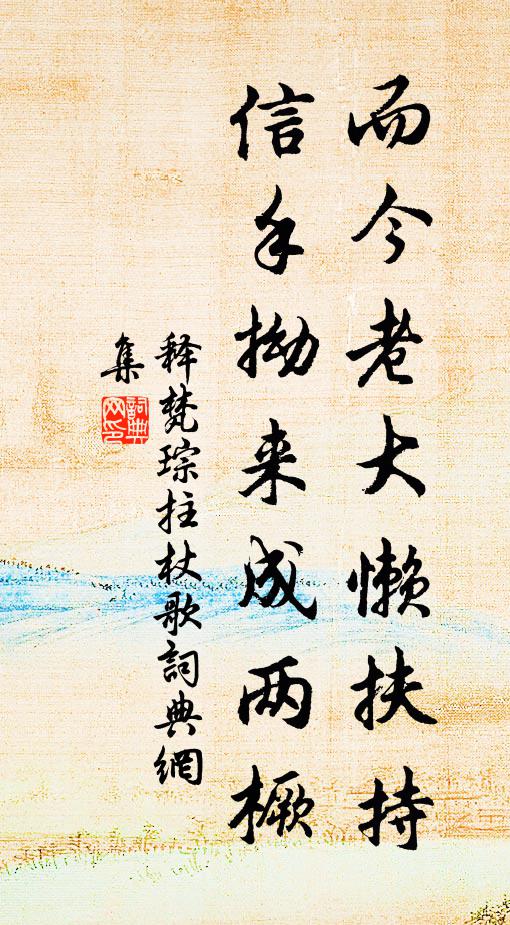 而今老大懒扶持
信手拗来成两橛
释梵琮拄杖歌詞典網
集
詞典网印